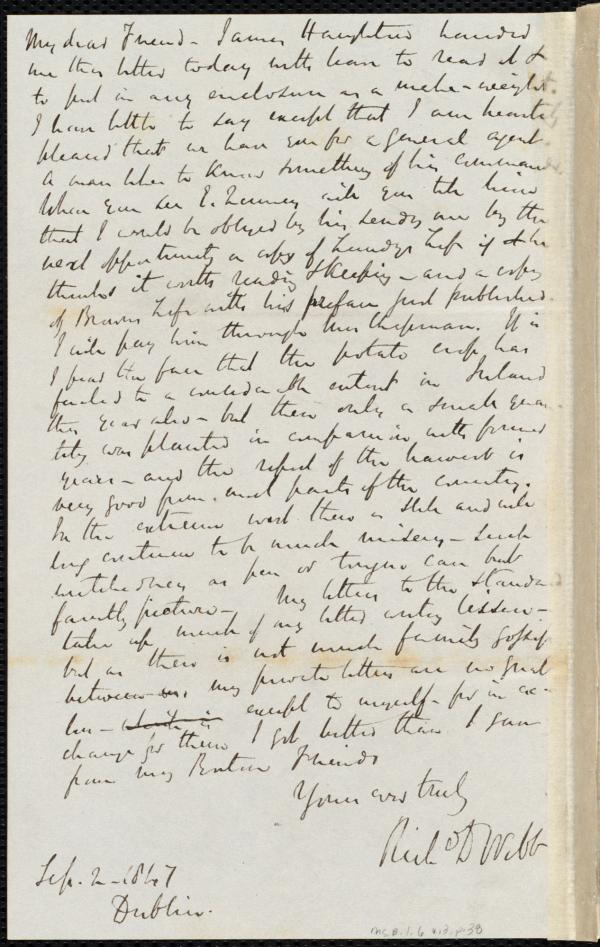 My dear Friend - James Haughton handed
me this letter today with leave to read it &
to put in any enclosure as a make-weight.
I have little to say except that I am heartily
pleased that we have you for a general agent.
A man likes to know something of his commander
When you see E. Quincy will you tell him
that I would be obliged by his sending me by the
next opportunity a copy of Lundy's Life if he
thinks it worth reading & keeping - and a copy
of Brown's Life with his preface just published.
I will pay him through Mrs Chapman. It is
I fear the fact that the potato crop has
failed to a considerable extent in Ireland
this year also - but then only a small quan-
tity was planted in comparison with former
years - and the report of the harvest is
very good from most parts of the country.
In the extreme west there is still and will
long continue to be much misery - such
wretchedness as pen or tongue can but
faintly picture - My letters to the Standard
take up much of my letter writing leisure -
but as there is not much family gossip
between us, my private letters are no great
loss - which is except to myself - for in ex-
change for them I got better than I gave
from my Boston Friends
Yours ever truly
Richd D Webb
Sep. 2 - 1847
Dublin.
Ms.B.1.6 v.13, p.38